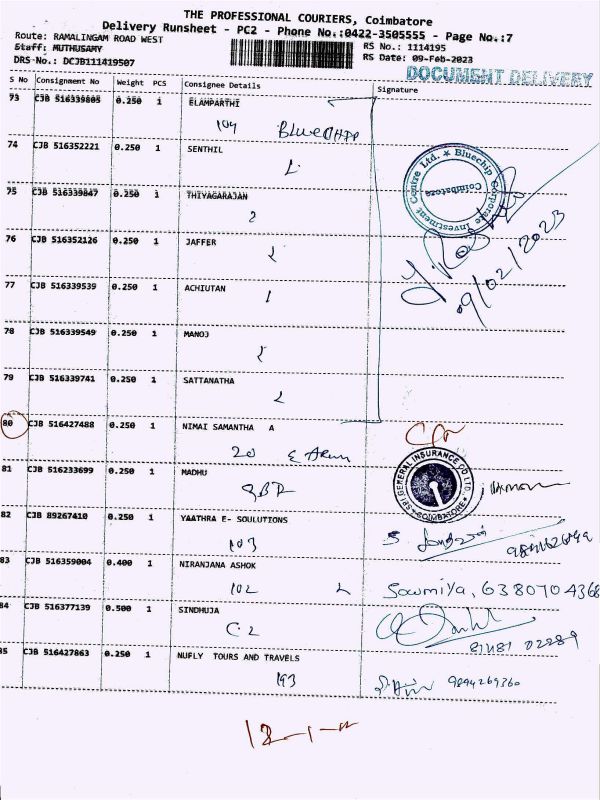 THE PROFESSIONAL COURIERS, Coimbatore
Delivery Runsheet - PC2 - Phone No.:0422-3505555 - Page No.:7
Route: RAMALINGAM ROAD WEST
RS No.: 1114195
Staff: MUTHUSAMY
RS Date: 09-Feb-2023
DRS-No.: DCJB111419507
DOCUMENT DELIVERY
S No Consignment No Weight PCS Consignee Details Signature
73 CJB 516339805 0.250 1 ELAMPARTHI
104 BLUECHIP
74 CJB 516352221 0.250 1 SENTHIL
Bluechip Corporate Investment Centre Ltd. * Coimbatore
75 CJB 516339847 0.250 1 THIYAGARAJAN
2
09/02/2023
76 CJB 516352126 0.250 1 JAFFER
77 CJB 516339539 0.250 1 ACHIUTAN
78 CJB 516339549 0.250 1 MANOJ
79 CJB 516339741 0.250 1 SATTANATHA
80 CJB 516427488 0.250 1 NIMAI SAMANTHA A
20
SBI GENERAL INSURANCE CO LTD. * COIMBATORE *
81 CJB 516233699 0.250 1 MADHU
82 CJB 89267410 0.250 1 YAATHRA E- SOULUTIONS
103
83 CJB 516359004 0.400 1 NIRANJANA ASHOK
102 Sowmiya, 63 80704368
84 CJB 516377139 0.500 1 SINDHUJA
C 2
85 CJB 516427863 0.250 1 NUFLY TOURS AND TRAVELS
193 9894269360